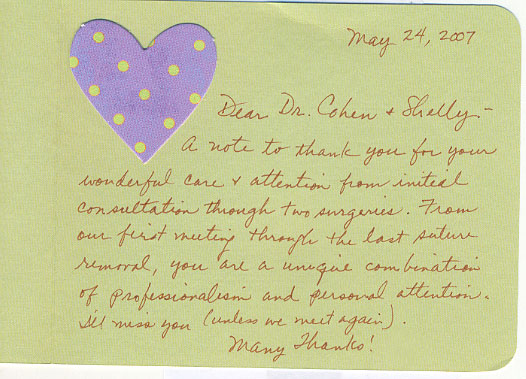 May 24, 2007
Dear Dr. Cohen & Shelly -
A note to thank you for your
wonderful care & attention from initial
consultation through two surgeries. From
our first meeting through the last suture
removal, you are a unique combination
of professionalism and personal attention.
I'll miss you (unless we meet again).
Many Thanks!